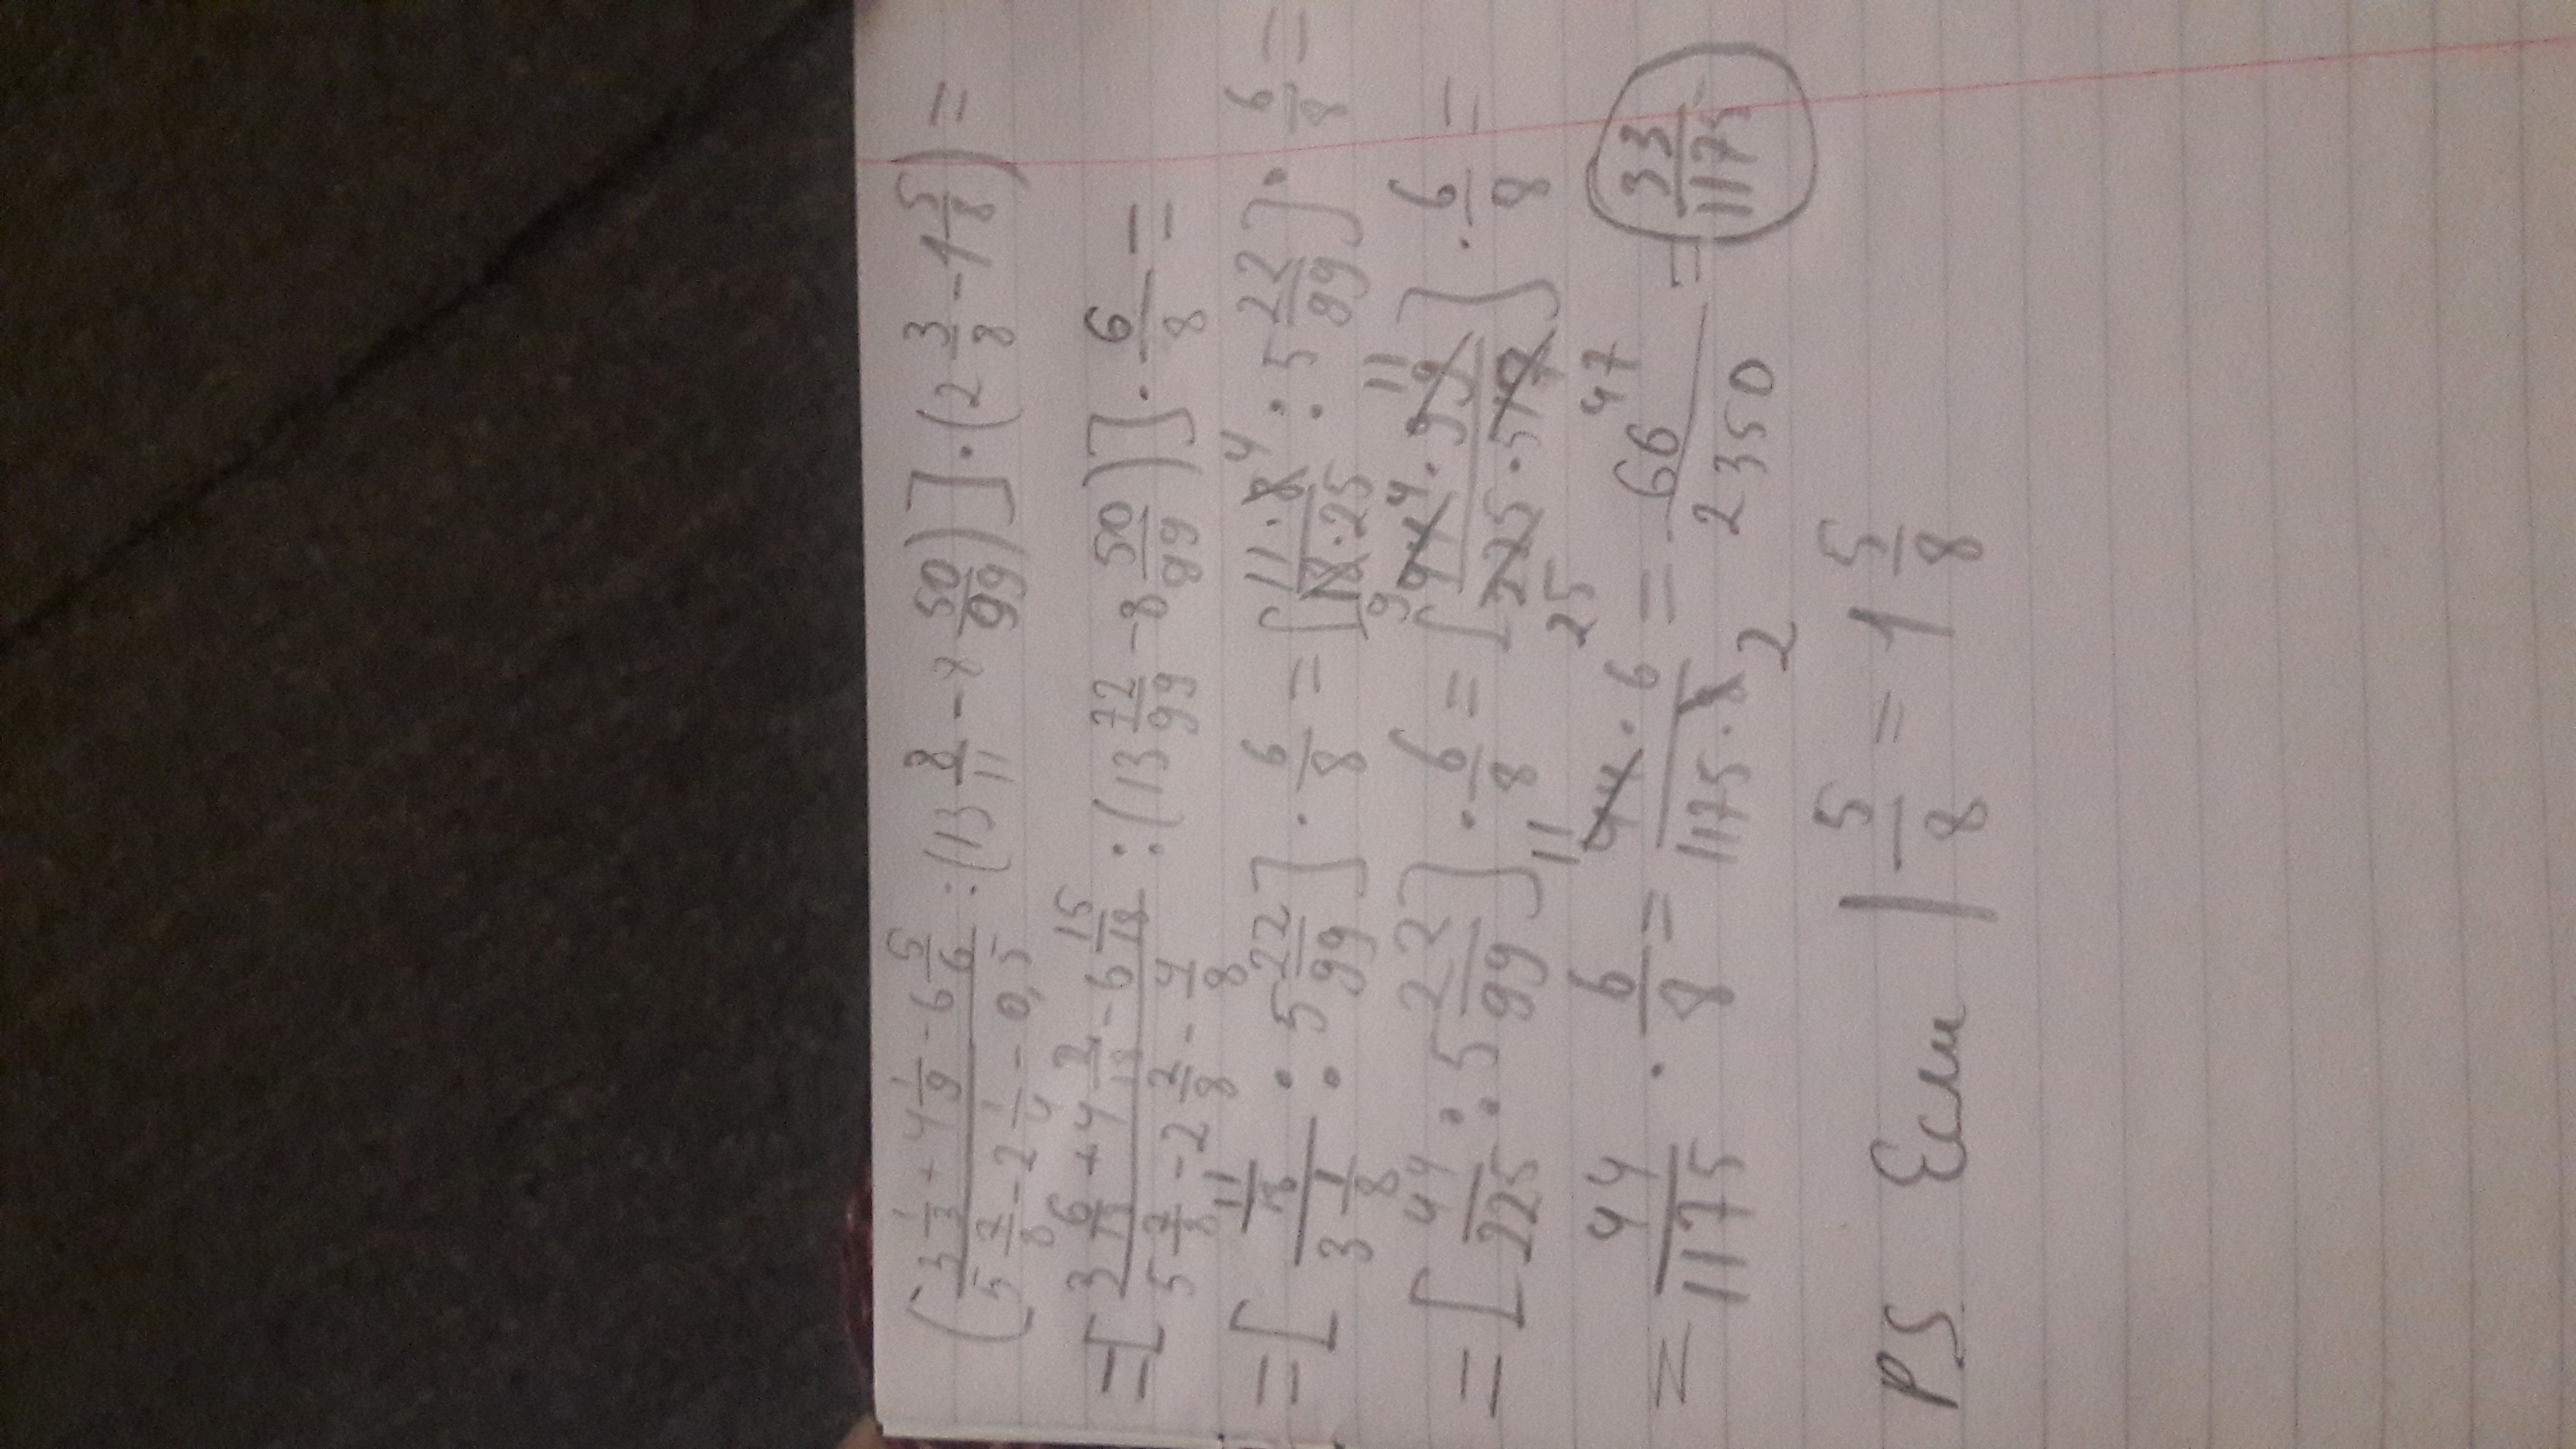 (3 1/3 + 4 1/9 - 6 5/6 / 5 7/8 - 2 1/4 - 0,5 : (13 8/11 - 8 50/99)] · (2 3/8 - 1 5/8) =
= [3 6/18 + 4 2/18 - 6 15/18 / 5 7/8 - 2 2/8 - 4/8 : (13 72/99 - 8 50/99)] · 6/8 =
= [11/18 / 3 1/8 : 5 22/99] · 6/8 = [11·8 4 / 18·25 9 : 5 22/99] · 6/8 =
= [44/225 : 5 22/99] · 6/8 = [44 4 · 99 11 / 225 25 · 517 47] · 6/8 =
= 44/1175 · 6/8 = 11 44 · 6 / 1175 · 8 2 = 66/2350 = 33/1175
PS Если | 5/8 = 1 5/8